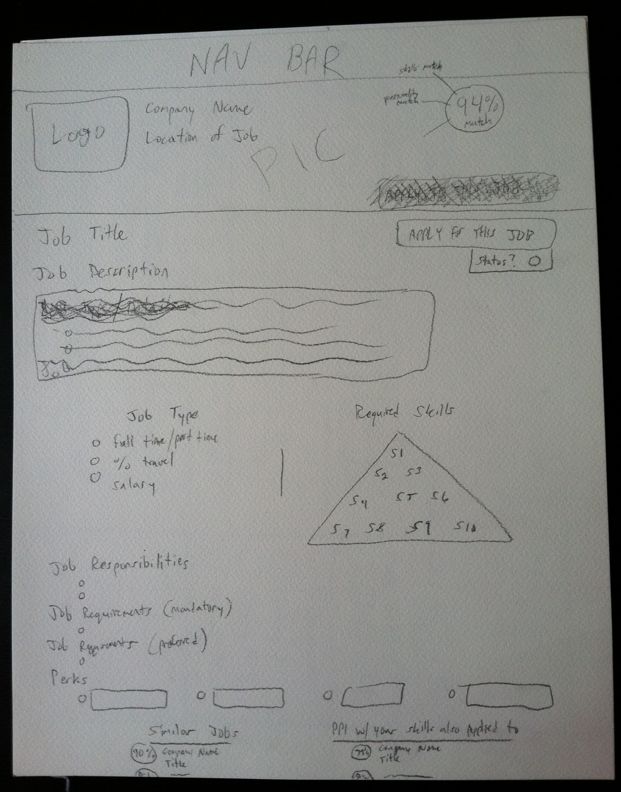 NAV BAR
skills match
personality match
94% match
Logo
Company Name
Location of Job
PIC
Job Title
APPLY FOR THIS JOB
Status?
Job Description
Job Type
full time/part time
% travel
salary
Required Skills
S1
S2 S3
S4 S5 S6
S7 S8 S9 S10
Job Responsibilities
Job Requirements (mandatory)
Job Requirements (preferred)
Perks
Similar Jobs
90% Company Name
Title
PPl w/ your skills also applied to
Company Name
Title